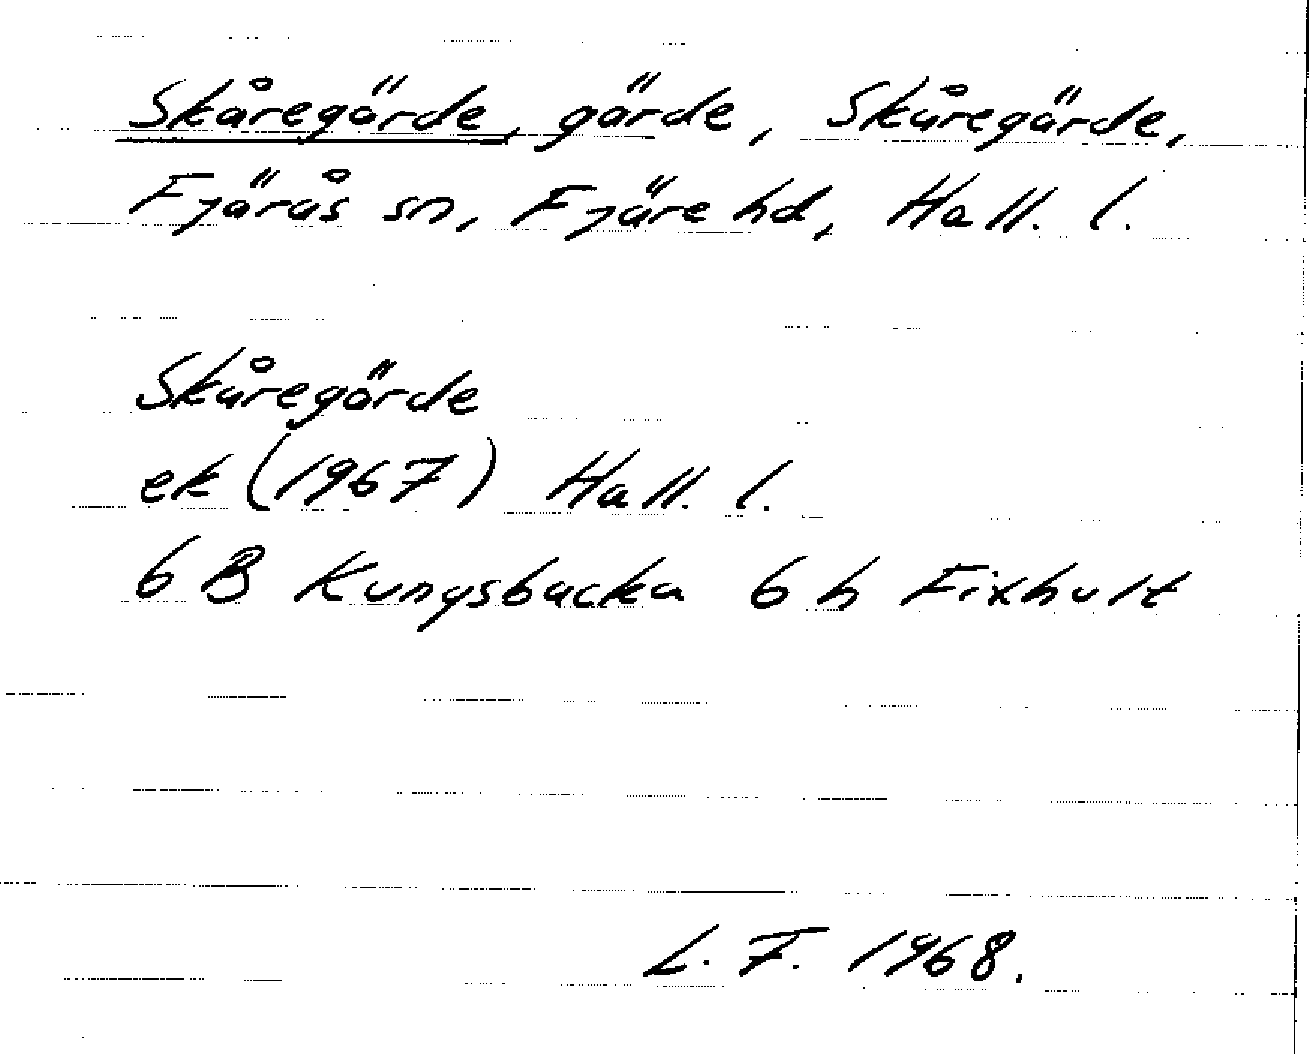 Skåregärde, gärde, Skåregärde,
Fjärås sn, Fjäre hd, Hall. l.
Skåregärde
ek (1967) Hall. l.
6 B Kungsbacka 6 h Fixhult
L. F. 1968.